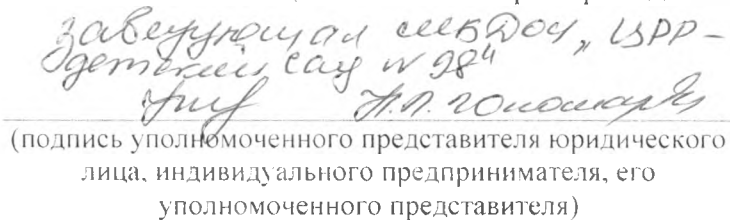 заведующая МБДОУ „ЦРР-
детский сад № 98"
Н.П.
(подпись уполномоченного представителя юридического
лица, индивидуального предпринимателя, его
уполномоченного представителя)